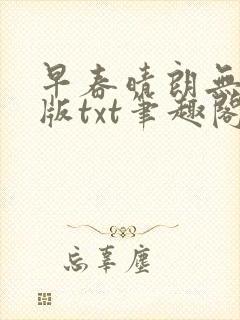 早春晴朗無
版txt筆趣閣
忘辜塵